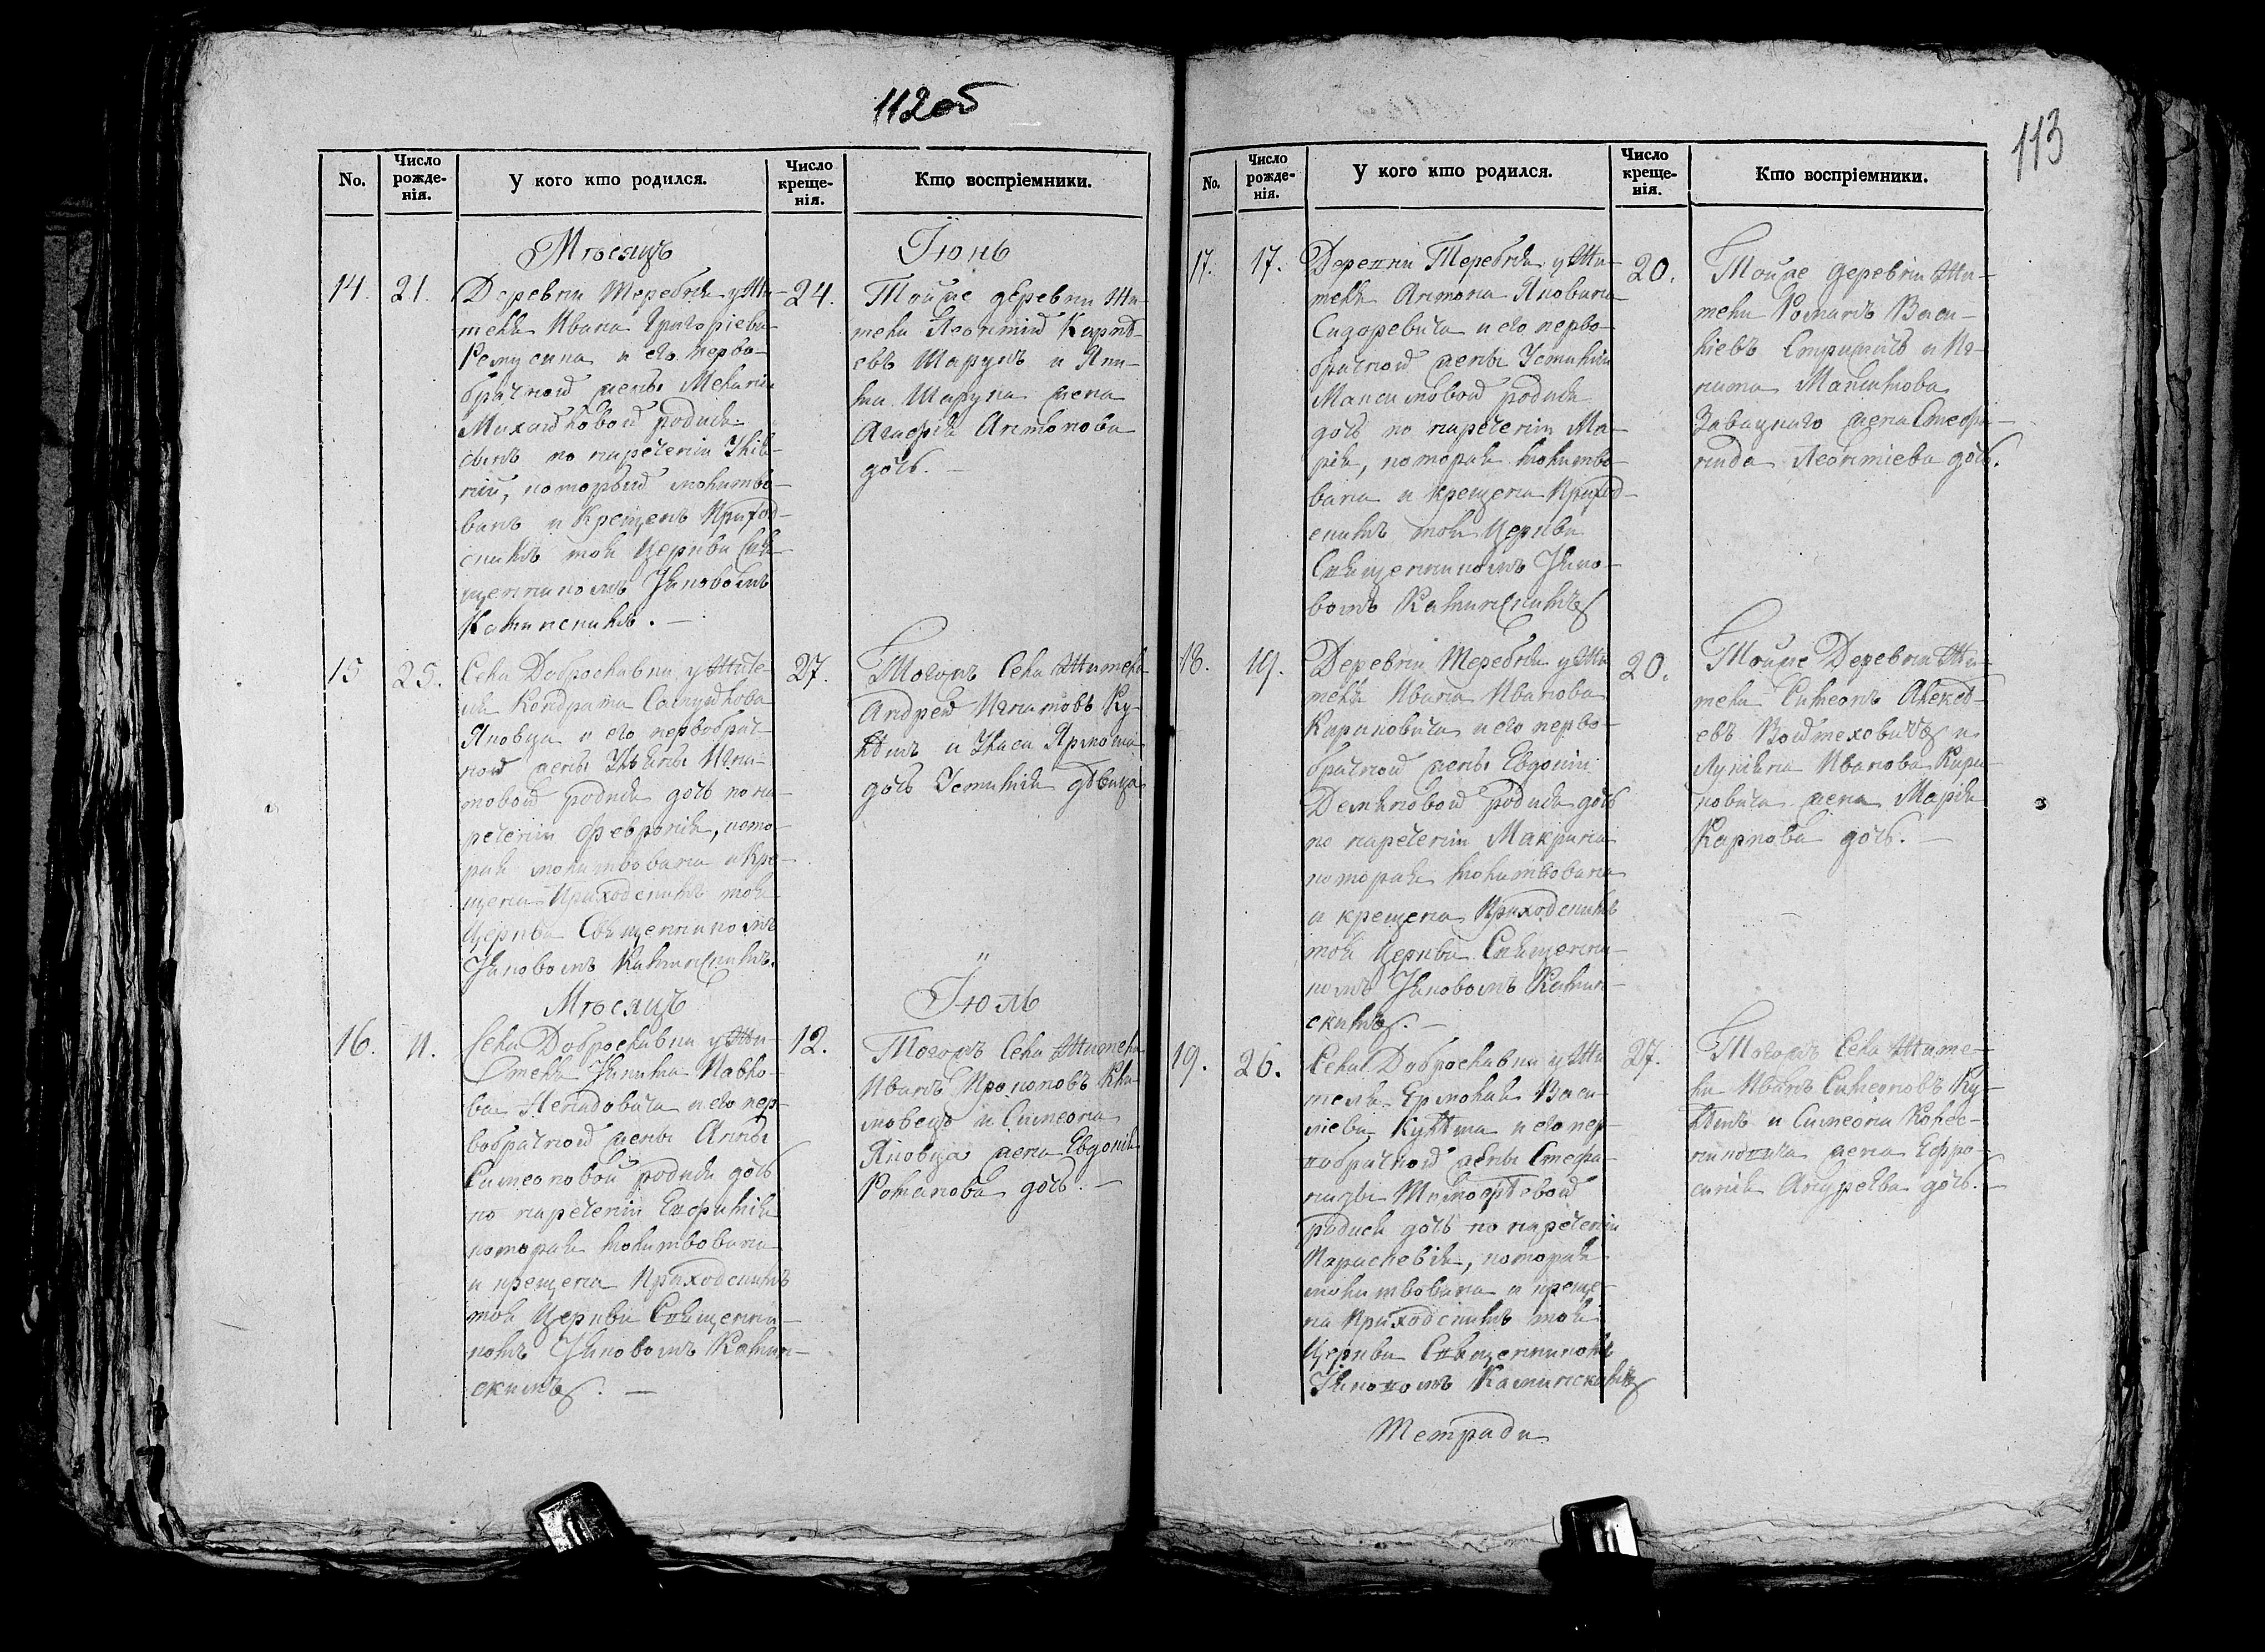 112об
No.
Число рожде-нія.
У кого кто родился.
Число креще-нія.
Кто воспріемники.
Мѣсяцъ Іюнь
14. 21.
Деревни Теребня у жи-
теля Ивана Григоріева
и его перво-
брачной жены Меланіи
Михайловой родился
сынъ по нареченіи Юлі-
аній, который молитво-
ванъ и крещенъ Приход-
скимъ моя Церкви Свя-
щенникомъ Іаковомъ
Каминскимъ. —
24.
Тойже деревни жи-
тели Леонтій Карпѣ-
евъ Шарунъ и Яко-
ва Шаруна жена
Агафія Антонова
дочь. —
15 25.
Села Доброславки у жите-
ля Кондрата Самуйлова
Яковца и его первобрач-
ной жены Ульяны Игна-
товой родилась дочь по на-
реченіи Февронія, кото-
рая молитвована и кре-
щена Приходскимъ моя
Церкви Священникомъ
Іаковомъ Каминскимъ.
27.
Тогожъ Села Жители
Андрей Игнатовъ Ку-
хтъ и
дочь Устинія дѣвица
Мѣсяцъ Іюль
16. 11.
Села Доброславки у жи-
теля Якима Павло-
ва Ненадовича и его пер-
вобрачной жены Анны
Симеоновой родилась дочь
по нареченіи Евфимія
которая молитвована
и крещена Приходскимъ
моя Церкви Священни-
комъ Іаковомъ Камин-
скимъ. —
12.
Тогожъ Села Жители
Иванъ Прокоповъ Кли-
мовецъ и Симеона
Яковца жена Евдокія
Романова дочь. —
113
No.
Число рожде-нія.
У кого кто родился.
Число креще-нія.
Кто воспріемники.
17. 17.
Деревни Теребня у жи-
теля Антона Яковлева
Сидоревича и его перво-
брачной жены Устиніи
Максимовой родилась
дочь по нареченіи Ма-
рія, которая молитво-
вана и крещена Приход-
скимъ моя Церкви
Священникомъ Іако-
вомъ Каминскимъ
20.
Тойже деревни жи-
тели Романъ Васи-
ліевъ и Иг-
ната Максимова
Завацкаго жена Стефа-
нида Леонтіева дочь.
18. 19.
Деревни Теребня у жи-
теля Ивана Иванова
Кариковича и его перво-
брачной жены Евдокіи
Демьяновой родилась дочь
по нареченіи Макрина
которая молитвована
и крещена Приходскимъ
моя Церкви Священни-
комъ Іаковомъ Камин-
скимъ. —
20.
Тойже Деревни Жи-
тели Симеонъ Алексѣ-
евъ Войтеховичъ и
Лукіяна Иванова Кари-
ковича жена Марія
Карпова дочь. —
19. 26.
Села Доброславки у жи-
теля Ермолая Васи-
ліева Кухтша и его пер-
вобрачной жены Стефа-
ниды Тимофѣевой
родилась дочь по нареченіи
Параскевія, которая
молитвована и креще-
на Приходскимъ моя
Церкви Священникомъ
Іаковомъ Каминскимъ
27.
Тогожъ Села Жите-
ли Иванъ Симеоновъ Ку-
хтъ и Симеона Колес-
никовича жена Ефро-
синія Андреева дочь. —
Тетради